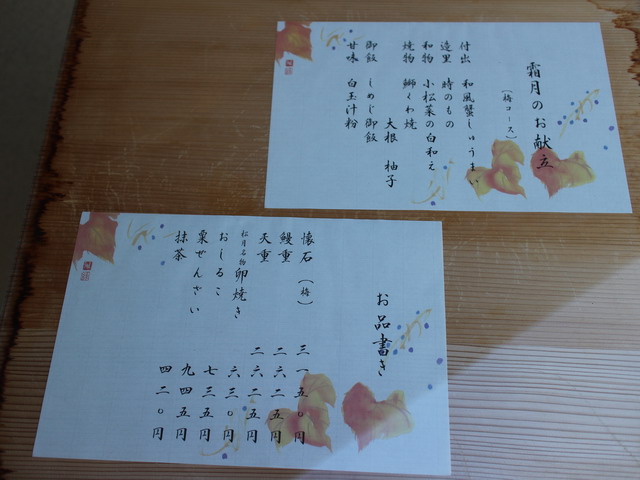 霜月のお献立
(梅コース)
付出 和風蟹しゅうまい
造里 時のもの
和物 小松菜の白和え
焼物 鰤くわ焼
大根 柚子
御飯 しめじ御飯
甘味 白玉汁粉
お品書き
懐石 (梅) 三一五〇円
鰻重 二六二五円
天重 二六二五円
松月名物 卵焼き 六三〇円
おしるこ 七三五円
栗ぜんざい 九四五円
抹茶 四二〇円